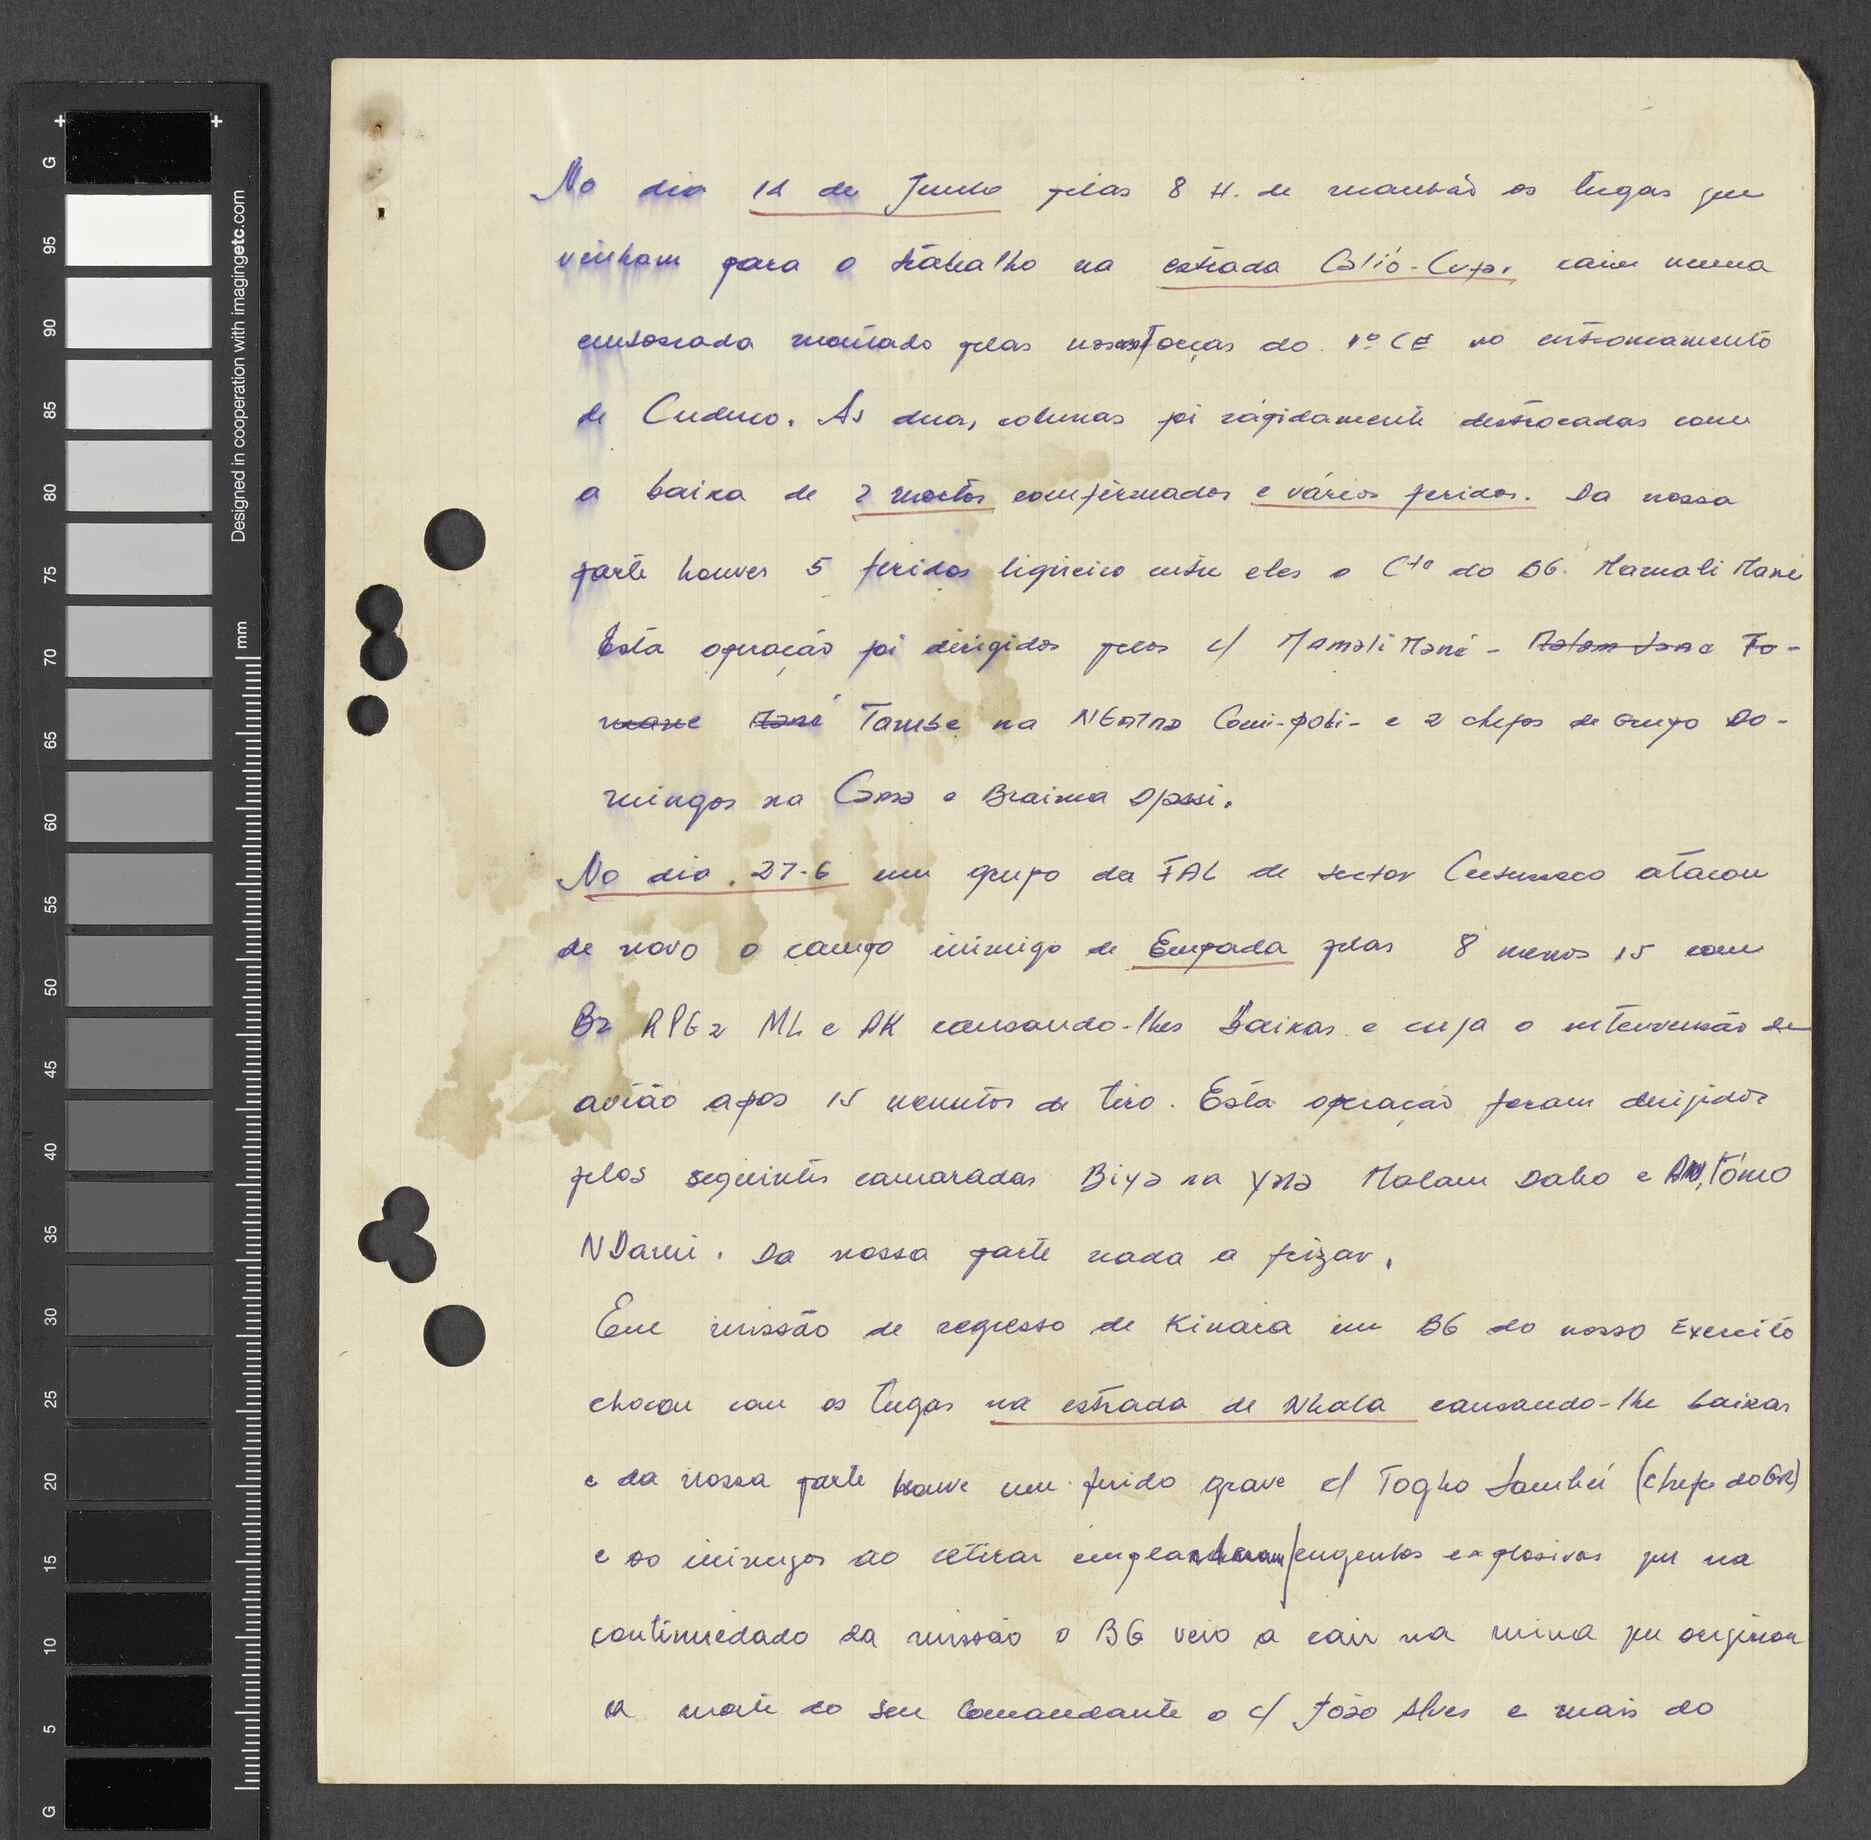 No dia 12 de Junho pelas 8 H. de manhão os tugas que
vinham para o trabalho na estrada Catió-Cufa, caiu numa
emboscada montado pelas nossas forças do 1º CE no entroncamento
de Cuduco. As duas, colunas foi rápidamente destrocadas com
a baixa de 2 mortos comfirmados e vários feridos. Da nossa
parte houves 5 feridos ligneiro entre eles o Cte do BG. Mamali Mané
Esta operação foi dirigidos pelos c/ Mamali Mané -
Tambe na Comi-poli- e 2 chefes de Grupo Do-
mingos na e Braima Djassi.
No dia. 27-6 um grupo da FAL de sector atacou
de novo o campo inimigo de Empada pelas 8 menos 15 com
Bz RPG2 ML e AK causando-lhes Baixas e cuja o intervensão de
avião apos 15 menutos de tiro. Esta operação foram dirijidos
pelos seguintes camaradas Biya na Yna Malam Dabo e António
NDami. Da nossa parte nada a frizar.
Em missão de regresso de Kinara um BG do nosso Exercito
chocou com os tugas na estrada de Nhala causando-lhe baixas
e da nossa parte houve um ferido grave c/ Togho (chefe do GR)
e os inimigos ao retirar engenhos explosivos que na
continuedado da missão o BG veio a cair na mina que originou
a morte do seu Comandante o c/ João Alves e mais do
Designed in cooperation with imagingetc.com
mm
G
95
90
85
80
75
70
65
60
55
50
45
40
35
30
25
20
15
10
5
G